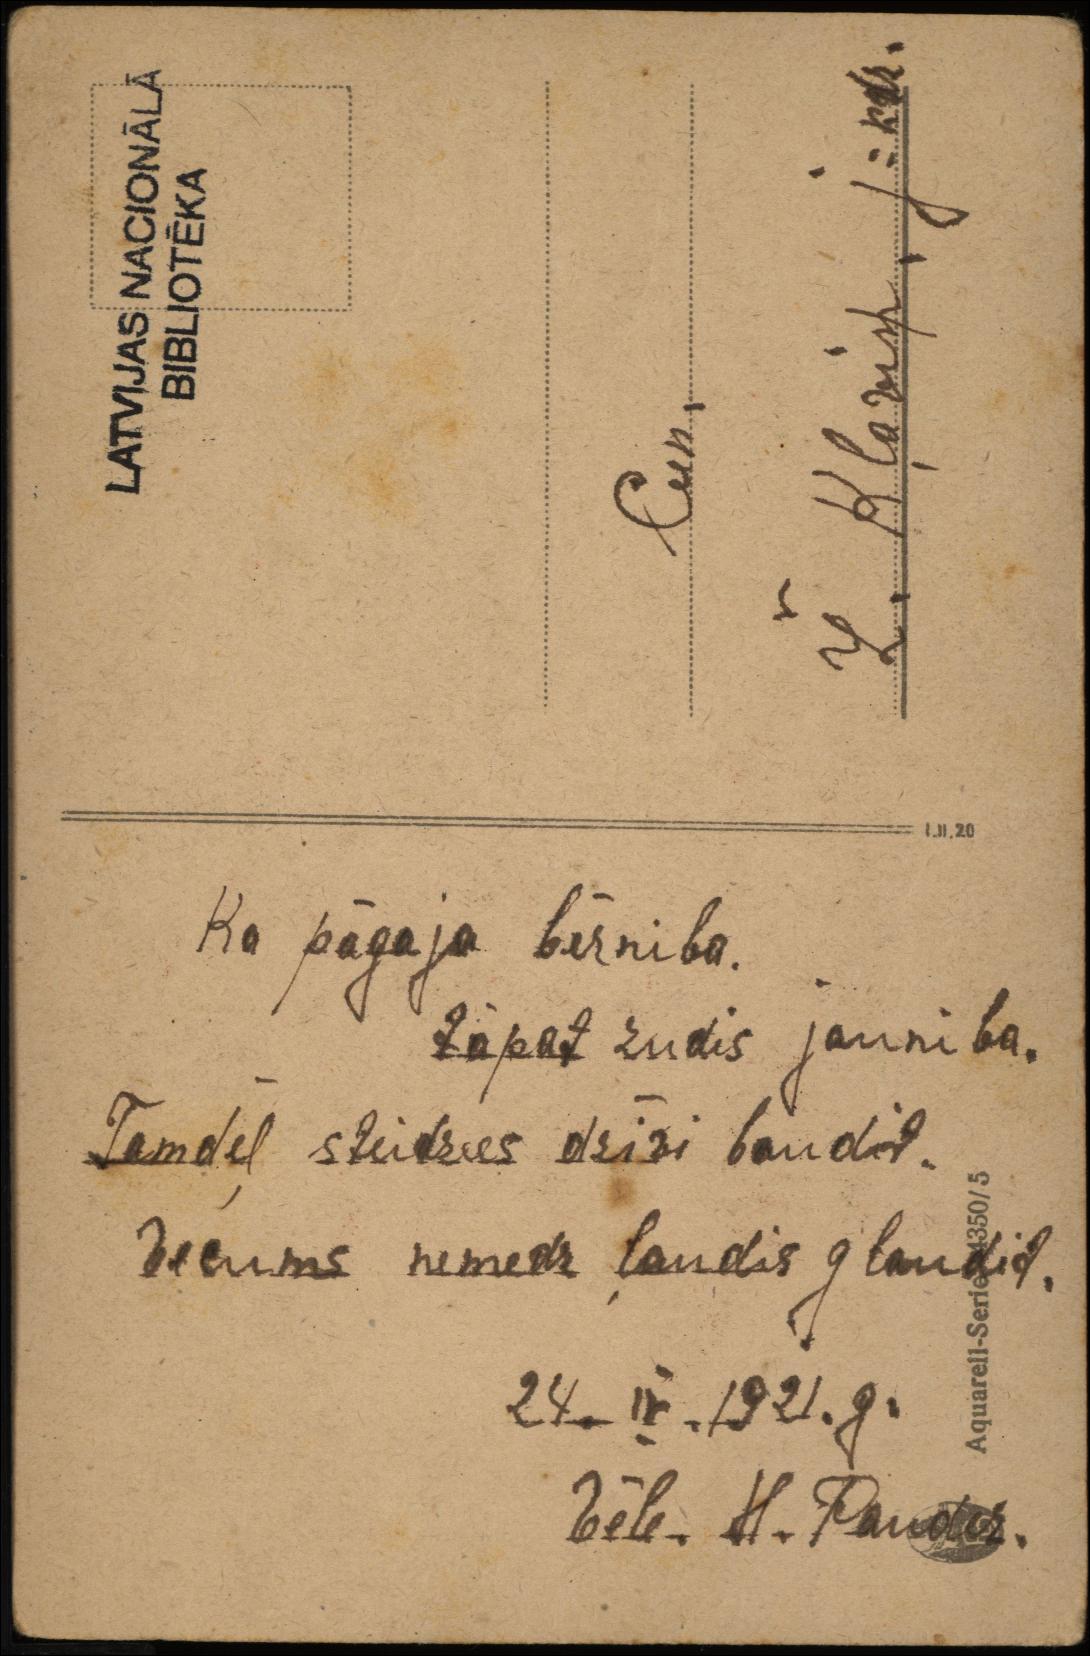 LATVIJAS NACIONĀLĀ
BIBLIOTĒKA
Cien.
Ž. Kļaviņ, j: kdz.
1.II.20
Ka pāgaja bērniba.
tāpat zudis jauniba.
Tamdēļ steidzies dzīvi baudit.
Vecums nemedz ļaudis glaudit.
24. IV. 1921. g.
Vēle. H. Pander.
Aquarell-Serie 4350/5